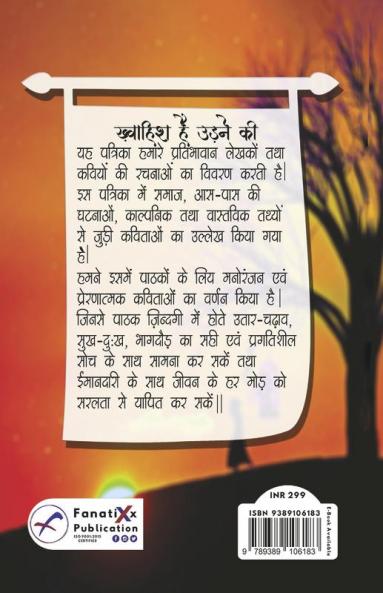 ख्वाहिश है उड़ने की
यह पत्रिका हमारे प्रतिभावान लेखकों तथा
कवियों की रचनाओं का विवरण करती है|
इस पत्रिका में समाज, आस-पास की
घटनाओं, काल्पनिक तथा वास्तविक तथ्यों
से जुड़ी कविताओं का उल्लेख किया गया
है|
हमने इसमें पाठकों के लिय मनोरंजन एवं
प्रेरणात्मक कविताओं का वर्णन किया है|
जिनसे पाठक ज़िन्दगी में होते उतार-चढ़ाव,
सुख-दुःख, भागदौड़ का सही एवं प्रगतिशील
सोच के साथ सामना कर सकें तथा
ईमानदरी के साथ जीवन के हर मोड़ को
सरलता से यापित कर सकें||
FanatiXx
Publication
ISO 9001:2015
CERTIFIED
INR 299
ISBN 9389106183
9 789389 106183
E-Book Available